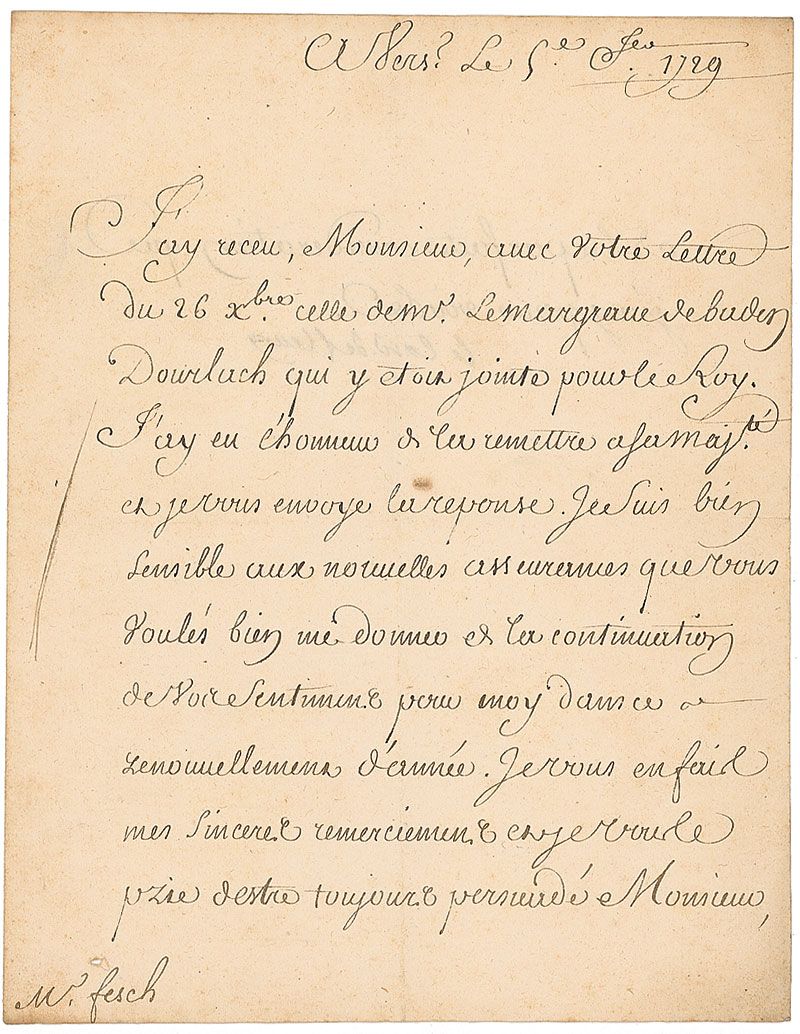 A Vers.ˢ Le 5.ᵉ Jer. 1729
J'ay receu, Monsieur, avec Votre Lettre
du 26 xbre. celle de mr. Le margrave de baden
Dourlach qui y etoit jointe pour le Roy.
J'ay eu l'honneur de la remettre a sa Maj.té
et je vous envoye la reponse. Je suis bien
sensible aux nouvelles asseurances que vous
voulés bien me donner de la continuation
de vos sentiments pour moy dans ce
renouvellement d'année. Je vous en fais
mes sinceres remerciements et je vous
prie d'estre toujours persuadé Monsieur,
Mr. fesch